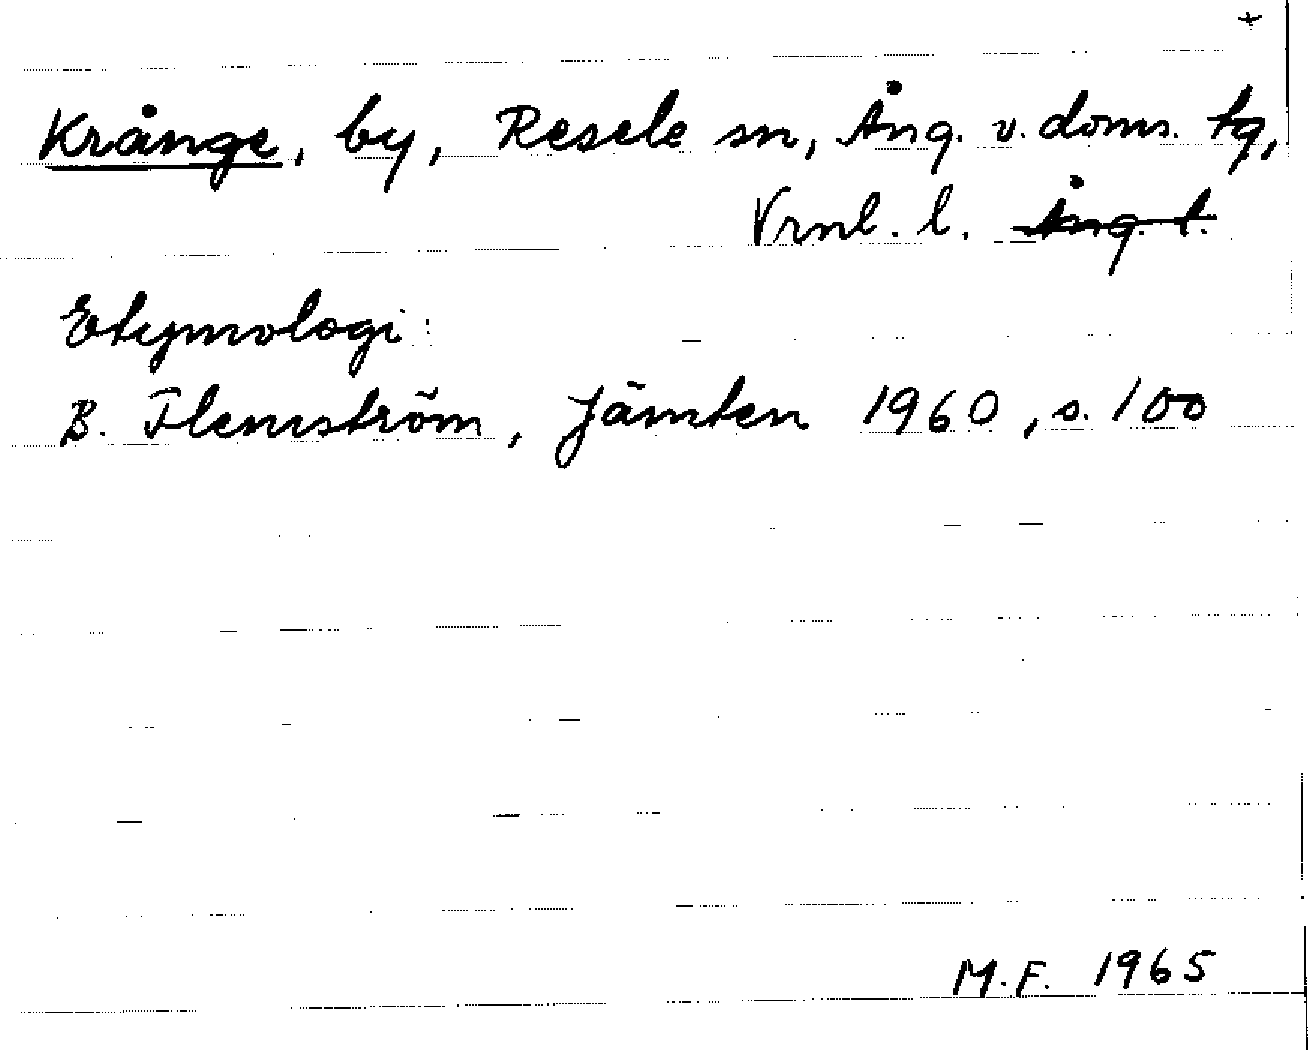 +
Krånge, by, Resele sn, Ång. v. doms. tg,
Vrnl. l. Ång. l.
Etymologi:
B. Flemström, Jämten 1960, s. 100
M.F. 1965